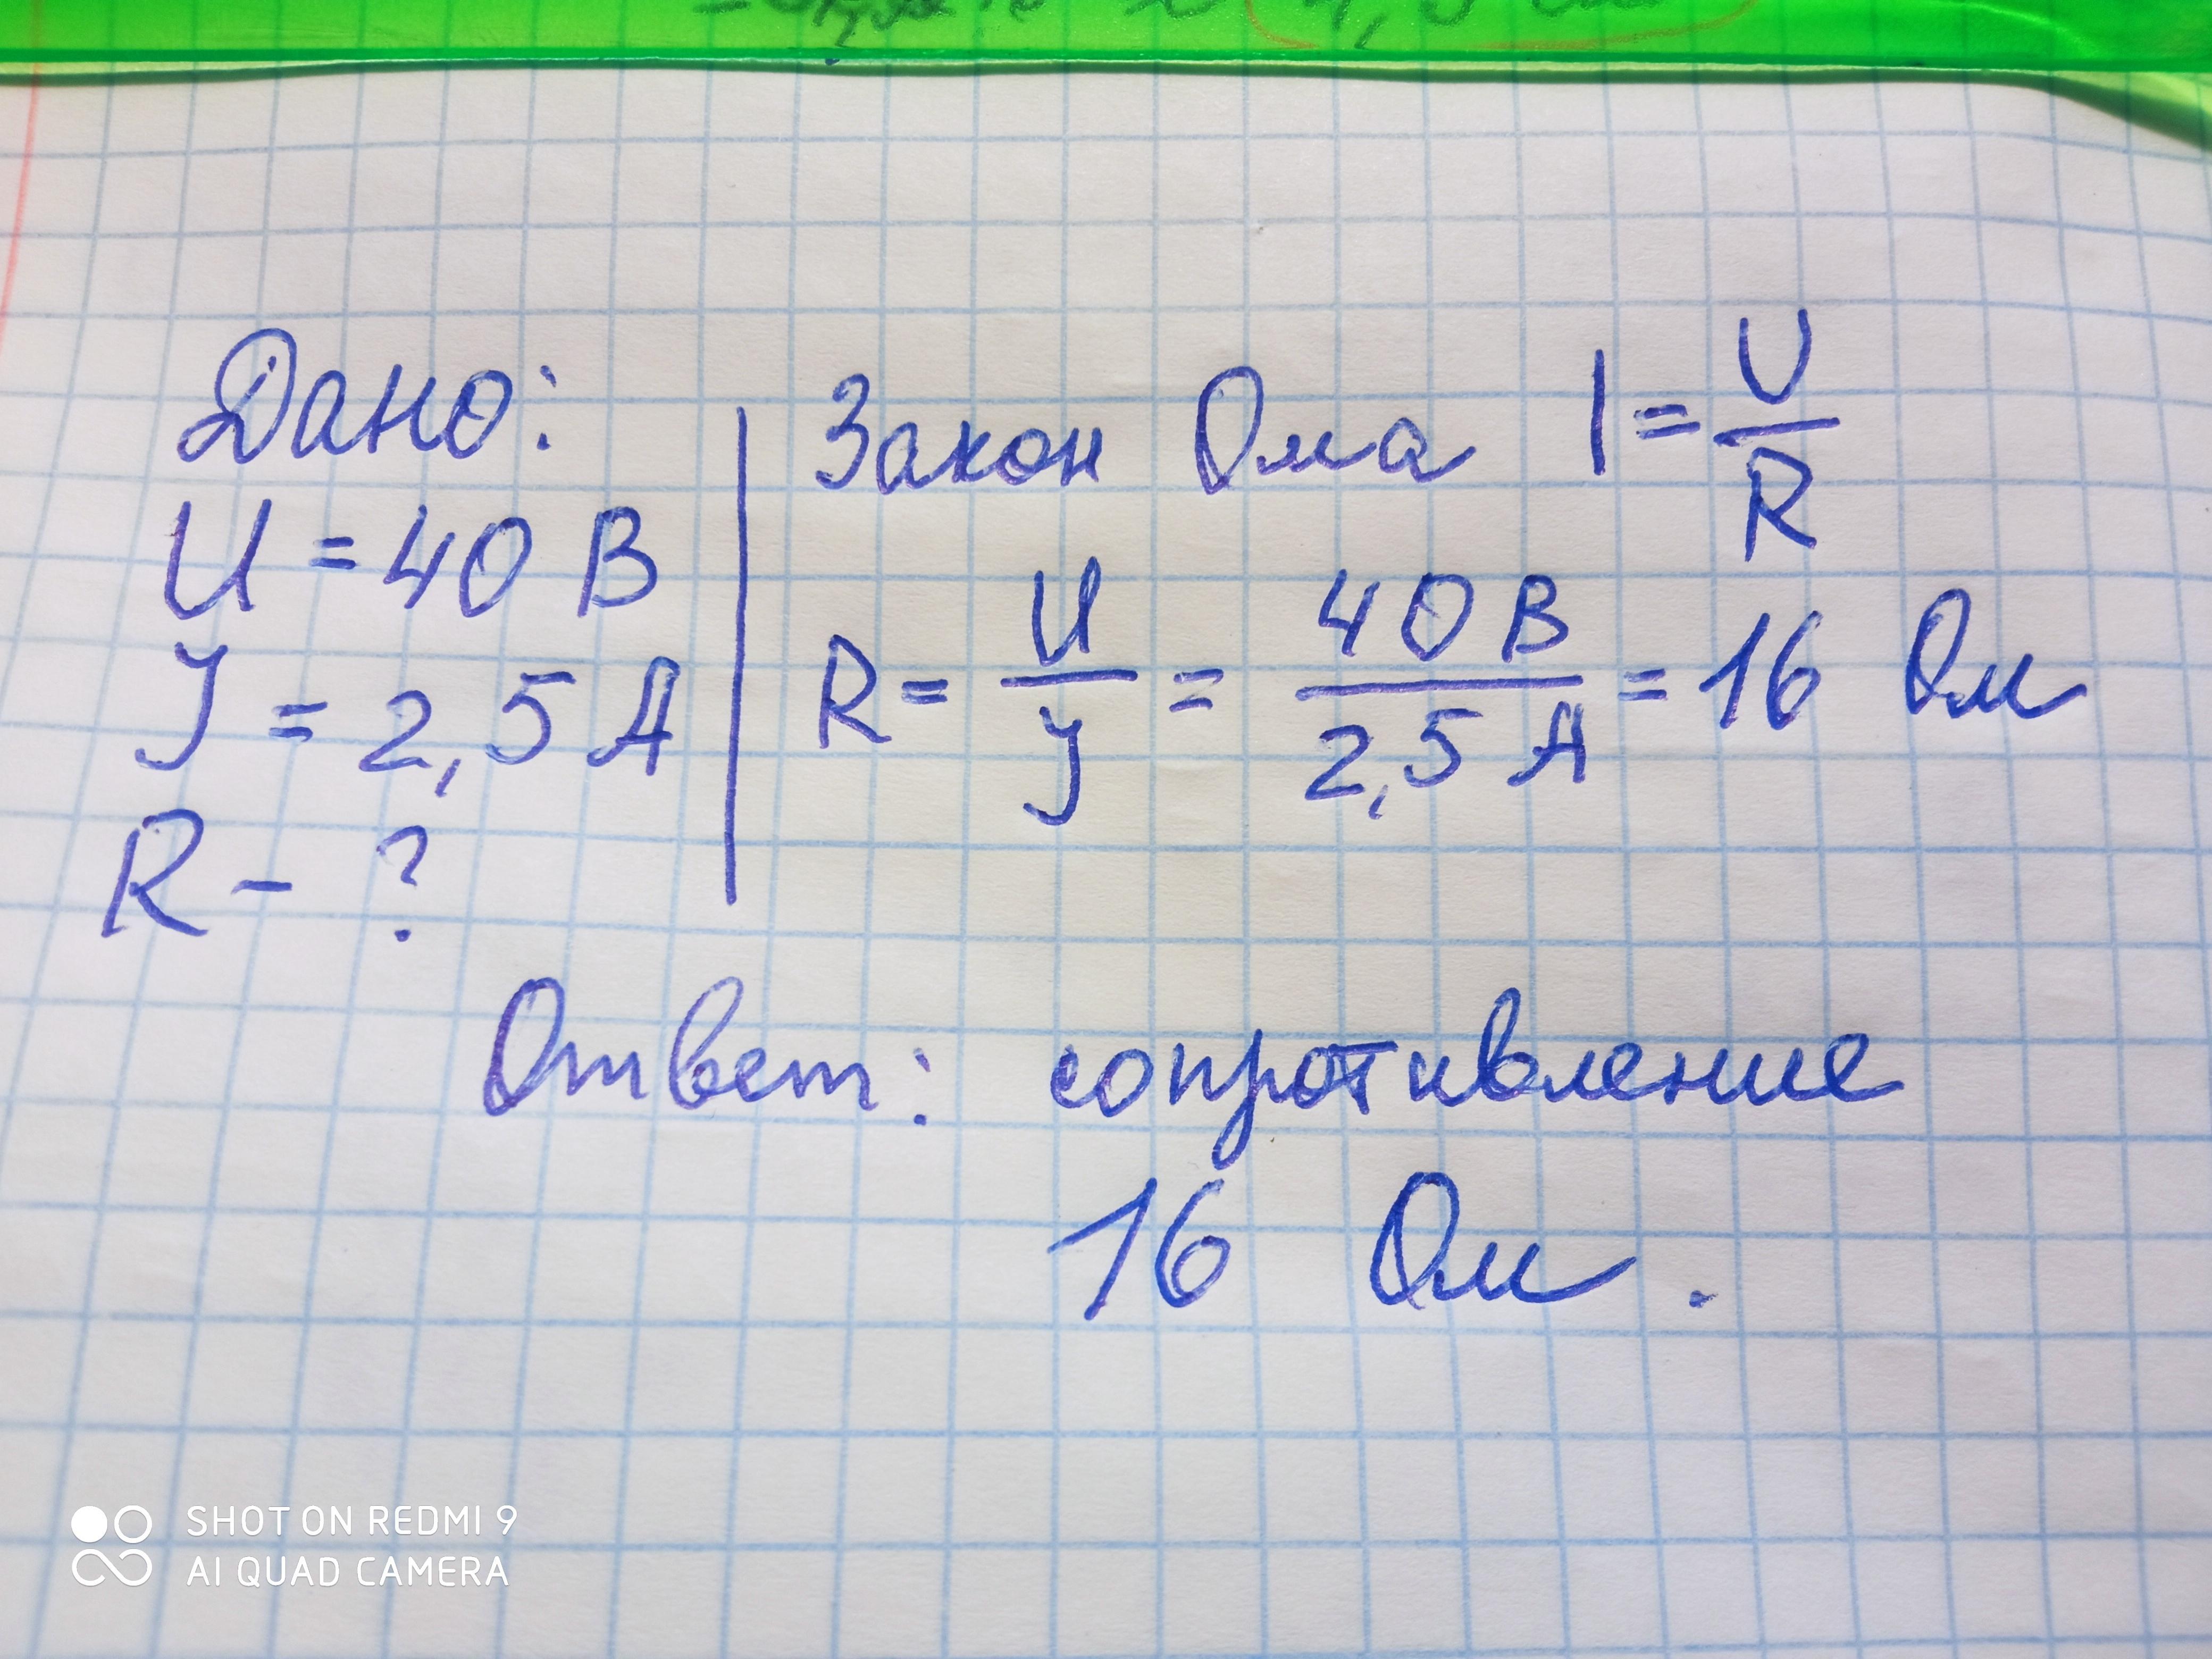 Дано:
U = 40 В
J = 2,5 А
R - ?
Закон Ома I = U/R
R = U/J = 40 В/2,5 А = 16 Ом
Ответ: сопротивление
16 Ом.
SHOT ON REDMI 9
AI QUAD CAMERA